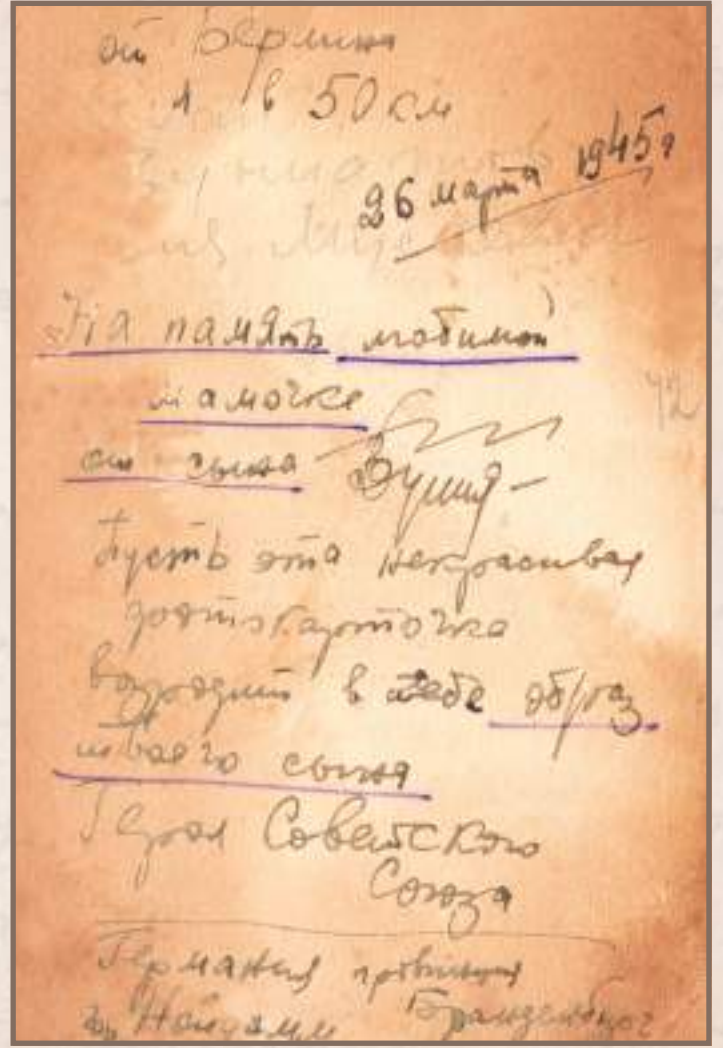 от Берлина
в 50 км
26 марта 1945 г
На память любимой
мамочке
от сына
Пусть эта некрасивая
фотокарточка
возродит в тебе образ
твоего сына
Героя Советского
Союза
Германия провинция
гор. Нойдамм Бранденбург
42